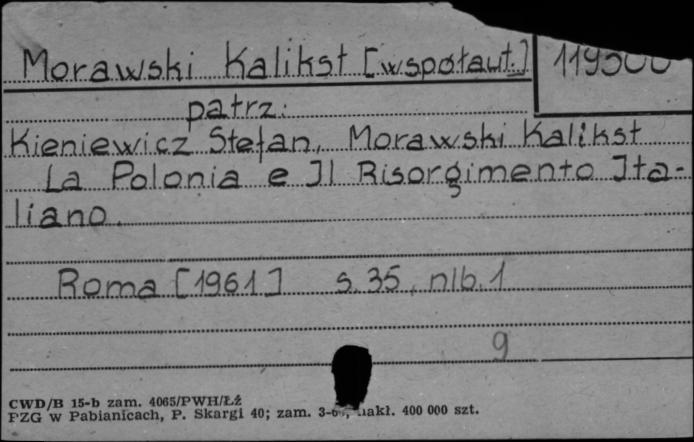 Morawski Kalikst [współaut.] 119500
patrz:
Kieniewicz Stefan, Morawski Kalikst
La Polonia e Il Risorgimento Ita-
liano.
Roma [1961] s. 35, nlb. 1
9
CWD/B 15-b zam. 4065/PWH/Łź
PZG w Pabianicach, P. Skargi 40; zam. nakł. 400 000 szt.